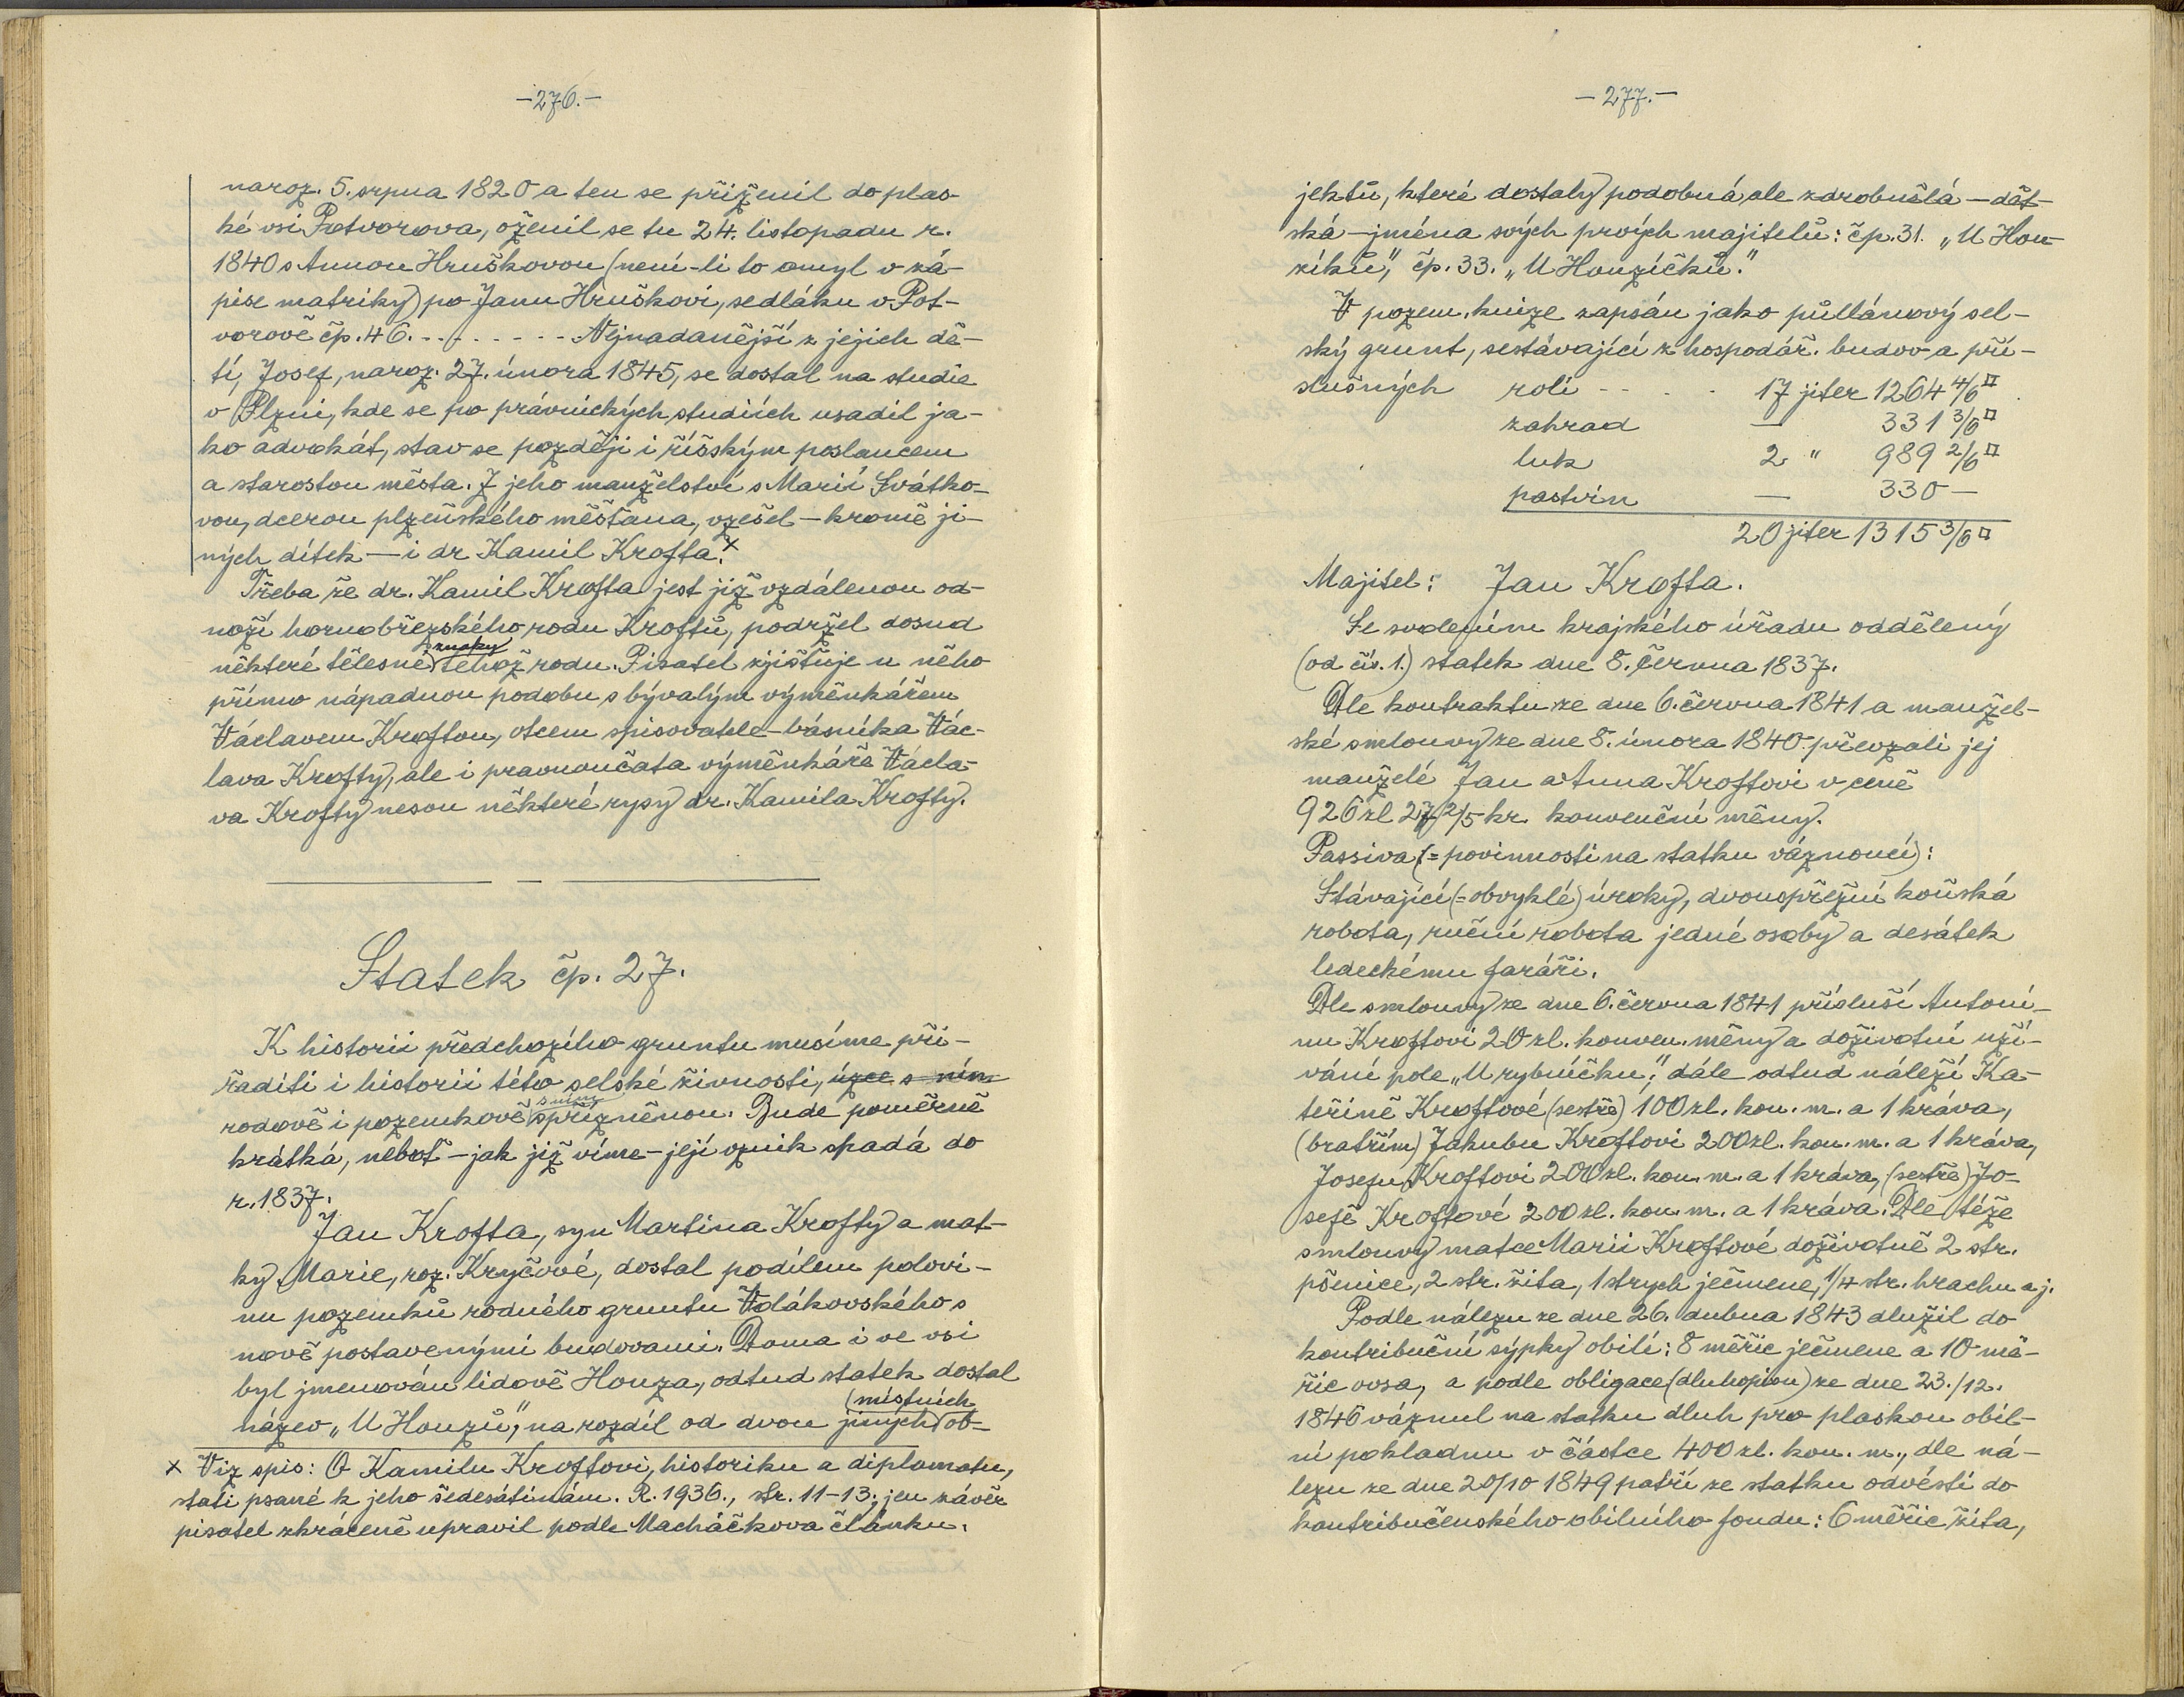 -276.-
naroz. 5. srpna 1820 a ten se přiženil do plas-
ké vsi Potvorova, oženil se tu 24. listopadu r.
1840 s Annou Hruškovou (není-li to omyl v zá-
pise matriky) po Janu Hruškovi, sedláku v Pot-
vorově čp. 46. - - - - - - - - Nejnadanější z jejich dě-
tí, Josef, naroz. 27. února 1845, se dostal na studie
v Plzni, kde se po právnických studiích usadil ja-
ko advokát, stav se později i říšským poslancem
a starostou města. Z jeho manželství s Marií Svátko-
vou, dcerou plzeňského měšťana, vzešel - kromě ji-
ných dítek - i dr Kamil Krofta. x
Třeba že dr. Kamil Krofta jest již vzdálenou od-
noží hornobřezského rodu Kroftů, podržel dosud
některé tělesné znaky téhož rodu. Pisatel zjišťuje u něho
přímo nápadnou podobu s bývalým výměnkářem
Václavem Kroftou, otcem spisovatele-básníka Vác-
lava Krofty, ale i pravnoučata výměnkáře Václa-
va Krofty nesou některé rysy dr. Kamila Krofty.
Statek čp. 27.
K historii předchozího gruntu musíme při-
řaditi i historii této selské živnosti, úzce s ním
rodově i pozemkově s ním spřízněnou. Bude poměrně
krátká, neboť - jak již víme - její vznik spadá do
r. 1837.
Jan Krofta, syn Martina Krofty a mat-
ky Marie, roz. Kryčové, dostal podílem polovi-
nu pozemků rodného gruntu Vdákovského s
nově postavenými budovami. Doma i ve vsi
byl jmenován lidově Honza, odtud statek dostal
název „U Honzů", na rozdíl od dvou jiných (místních) ob-
x Viz spis: O Kamilu Kroftovi, historiku a diplomatu,
stati psané k jeho šedesátinám. R. 1936., str. 11-13; jen závěr
pisatel zkráceně upravil podle Macháčkova článku.
-277.-
jektů, které dostaly podobná ale zdrobnělá - dět-
ská - jména svých prvých majitelů: čp. 31. „U Hon-
zíků", čp. 33. „U Honzíčků."
V pozem. knize zapsán jako půllánový sel-
ský grunt, sestávající z hospodář. budov a pří-
slušných rolí - - . . 17 jiter 1264 4/6 □
zahrad — 331 3/6 □
luk 2 " 989 2/6 □
pastvin — 330 —
20 jiter 1315 3/6 □
Majitel: Jan Krofta.
Se svolením krajského úřadu oddělený
(od čís. 1.) statek dne 8. června 1837.
Dle kontraktu ze dne 6. června 1841 a manžel-
ské smlouvy ze dne 8. února 1840 převzali jej
manželé Jan a Anna Kroftovi v ceně
926 zl 27 2/5 kr. konvenční měny.
Passiva (= povinnosti na statku váznoucí):
Stávající (= obvyklé) úroky, dvouspřežní koňská
robota, ruční robota jedné osoby a desátek
ledeckému faráři.
Dle smlouvy ze dne 6. června 1841 přísluší Antoní-
nu Kroftovi 20 zl. konven. měny a doživotní uží-
vání pole „U rybníčku", dále odtud náleží Ka-
teřině Kroftové (sestře) 100 zl. kon. m. a 1 kráva,
(bratřím) Jakubu Kroftovi 200 zl. kon. m. a 1 kráva,
Josefu Kroftovi 200 zl. kon. m. a 1 kráva, (sestře) Jo-
sefě Kroftové 200 zl. kon. m. a 1 kráva. Dle téže
smlouvy matce Marii Kroftové doživotně 2 str.
pšenice, 2 str. žita, 1 strych ječmene, 1/4 str. hrachu a j.
Podle nálezu ze dne 26. dubna 1843 dlužil do
kontribuční sýpky obilí: 8 měřic ječmene a 10 mě-
řic ovsa, a podle obligace (dluhopisu) ze dne 23./12.
1846 váznul na statku dluh pro plaskou obil-
ní pokladnu v částce 400 zl. kon. m., dle ná-
lezu ze dne 20/10 1849 patří ze statku odvésti do
kontribučenského obilního fondu: 6 měřic žita,